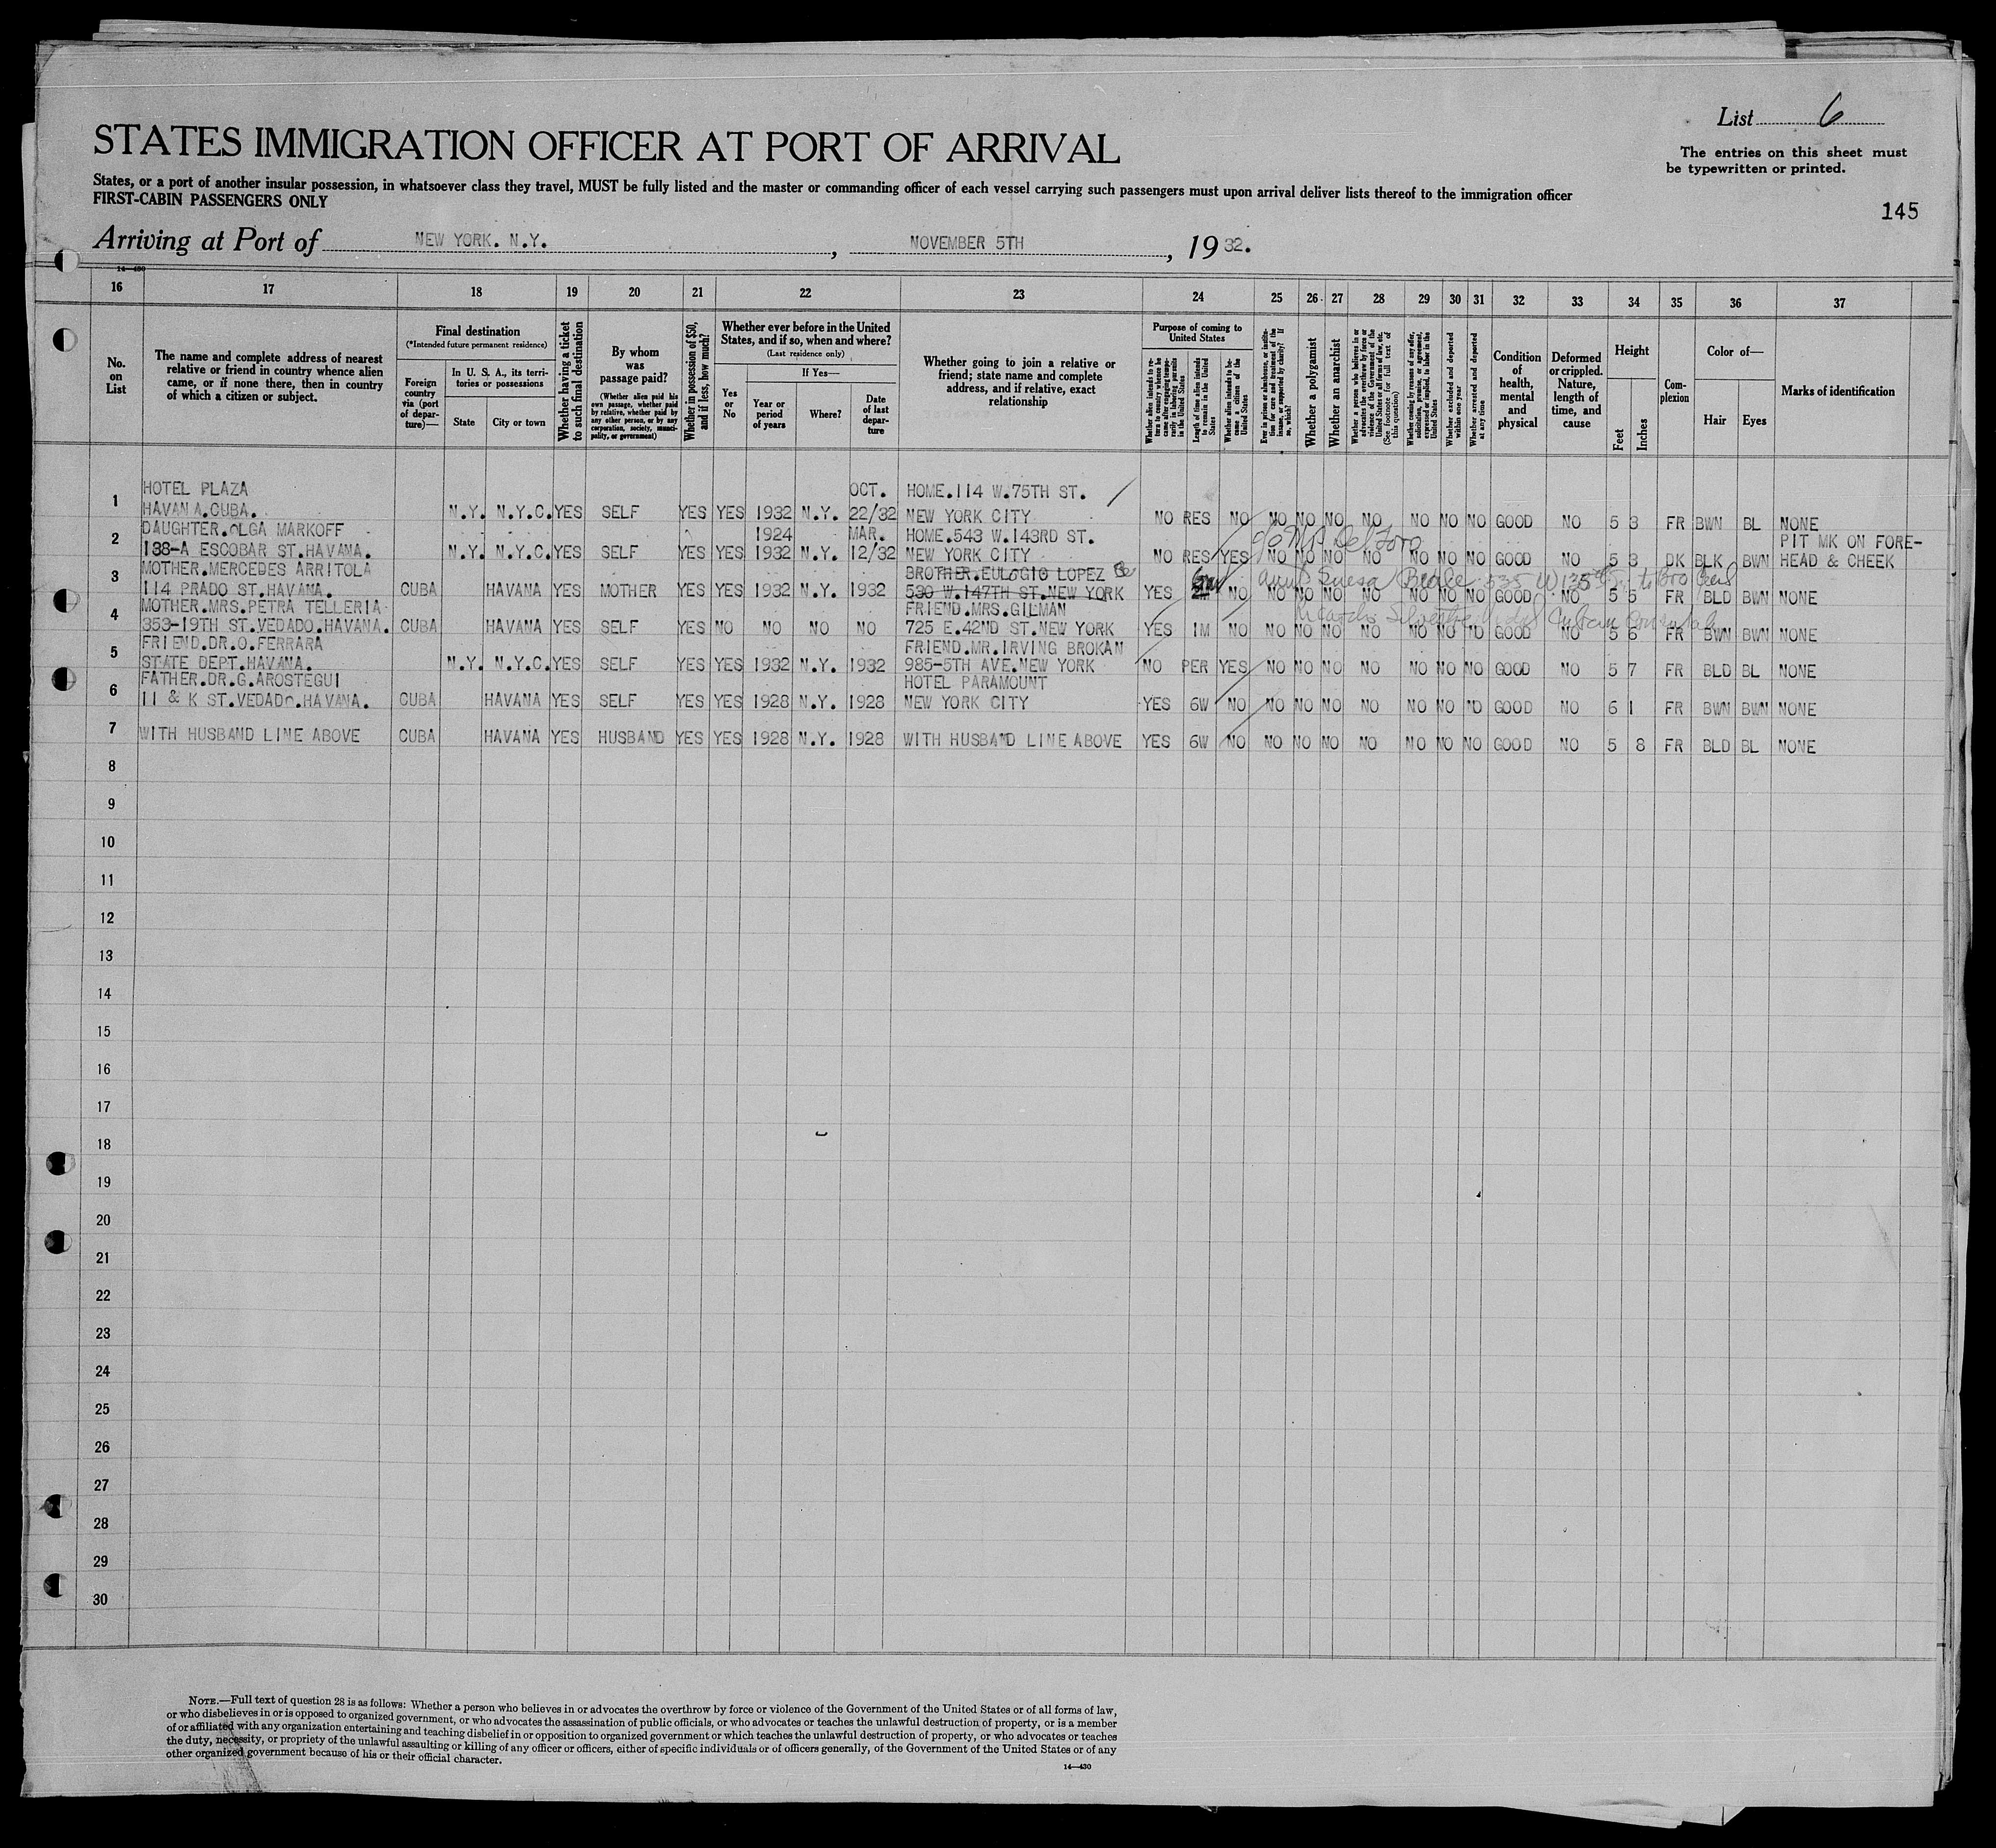 List 6
STATES IMMIGRATION OFFICER AT PORT OF ARRIVAL
The entries on this sheet must
be typewritten or printed.
States, or a port of another insular possession, in whatsoever class they travel, MUST be fully listed and the master or commanding officer of each vessel carrying such passengers must upon arrival deliver lists thereof to the immigration officer
FIRST-CABIN PASSENGERS ONLY
145
Arriving at Port of NEW YORK. N.Y. , NOVEMBER 5TH , 19 32.
14—430
16 17 18 19 20 21 22 23 24 25 26 27 28 29 30 31 32 33 34 35 36 37
No. on List
The name and complete address of nearest relative or friend in country whence alien came, or if none there, then in country of which a citizen or subject.
Final destination
(*Intended future permanent residence)
Foreign country via (port of departure)—
In U. S. A., its territories or possessions
State
City or town
Whether having a ticket to such final destination
By whom was passage paid?
(Whether alien paid his own passage, whether paid by relative, whether paid by any other person, or by any corporation, society, municipality, or government)
Whether in possession of $50, and if less, how much?
Whether ever before in the United States, and if so, when and where?
(Last residence only)
Yes or No
If Yes—
Year or period of years
Where?
Date of last departure
Whether going to join a relative or friend; state name and complete address, and if relative, exact relationship
Purpose of coming to United States
Whether alien intends to return to country whence he came after engaging temporarily in laboring pursuits in the United States
Length of time alien intends to remain in the United States
Whether alien intends to become a citizen of the United States
Ever in prison or almshouse, or institution for care and treatment of the insane, or supported by charity? If so, which?
Whether a polygamist
Whether an anarchist
Whether a person who believes in or advocates the overthrow by force or violence of the Government of the United States or all forms of law, etc. (See footnote for full text of this question)
Whether coming by reason of any offer, solicitation, promise, or agreement, expressed or implied, to labor in the United States
Whether excluded and deported within one year
Whether arrested and deported at any time
Condition of health, mental and physical
Deformed or crippled. Nature, length of time, and cause
Height
Feet
Inches
Complexion
Color of—
Hair
Eyes
Marks of identification
HOTEL PLAZA OCT. HOME.114 W.75TH ST.
1 HAVANA.CUBA. N.Y. N.Y.C. YES SELF YES YES 1932 N.Y. 22/32 NEW YORK CITY NO RES NO NO NO NO NO NO NO NO GOOD NO 5 3 FR BWN BL NONE
DAUGHTER.OLGA MARKOFF 1924 MAR. HOME.543 W.143RD ST. PIT MK ON FORE-
2 138-A ESCOBAR ST.HAVANA. N.Y. N.Y.C. YES SELF YES YES 1932 N.Y. 12/32 NEW YORK CITY NO RES YES NO NO NO NO NO NO NO GOOD NO 5 3 DK BLK BWN HEAD & CHEEK
c/o Mrs Del Toro
MOTHER.MERCEDES ARRITOLA BROTHER.EULOGIO LOPEZ
3 114 PRADO ST.HAVANA. CUBA HAVANA YES MOTHER YES YES 1932 N.Y. 1932 530 W.147TH ST.NEW YORK YES NO NO NO NO NO NO NO NO GOOD NO 5 5 FR BLD BWN NONE
535 W 135
MOTHER.MRS.PETRA TELLERIA FRIEND.MRS.GILMAN
4 353-19TH ST.VEDADO.HAVANA. CUBA HAVANA YES SELF YES NO NO NO NO 725 E.42ND ST.NEW YORK YES 1M NO NO NO NO NO NO NO NO GOOD NO 5 6 FR BWN BWN NONE
FRIEND.DR.O.FERRARA FRIEND.MR.IRVING BROKAN
5 STATE DEPT.HAVANA. N.Y. N.Y.C. YES SELF YES YES 1932 N.Y. 1932 985-5TH AVE.NEW YORK NO PER YES NO NO NO NO NO NO NO GOOD NO 5 7 FR BLD BL NONE
FATHER.DR.G.AROSTEGUI HOTEL PARAMOUNT
6 11 & K ST.VEDADO.HAVANA. CUBA HAVANA YES SELF YES YES 1928 N.Y. 1928 NEW YORK CITY YES 6W NO NO NO NO NO NO NO NO GOOD NO 6 1 FR BWN BWN NONE
7 WITH HUSBAND LINE ABOVE CUBA HAVANA YES HUSBAND YES YES 1928 N.Y. 1928 WITH HUSBAND LINE ABOVE YES 6W NO NO NO NO NO NO NO NO GOOD NO 5 8 FR BLD BL NONE
8
9
10
11
12
13
14
15
16
17
18
19
20
21
22
23
24
25
26
27
28
29
30
NOTE.—Full text of question 28 is as follows: Whether a person who believes in or advocates the overthrow by force or violence of the Government of the United States or of all forms of law,
or who disbelieves in or is opposed to organized government, or who advocates the assassination of public officials, or who advocates or teaches the unlawful destruction of property, or is a member
of or affiliated with any organization entertaining and teaching disbelief in or opposition to organized government or which teaches the unlawful destruction of property, or who advocates or teaches
the duty, necessity, or propriety of the unlawful assaulting or killing of any officer or officers, either of specific individuals or of officers generally, of the Government of the United States or of any
other organized government because of his or their official character.
14—430